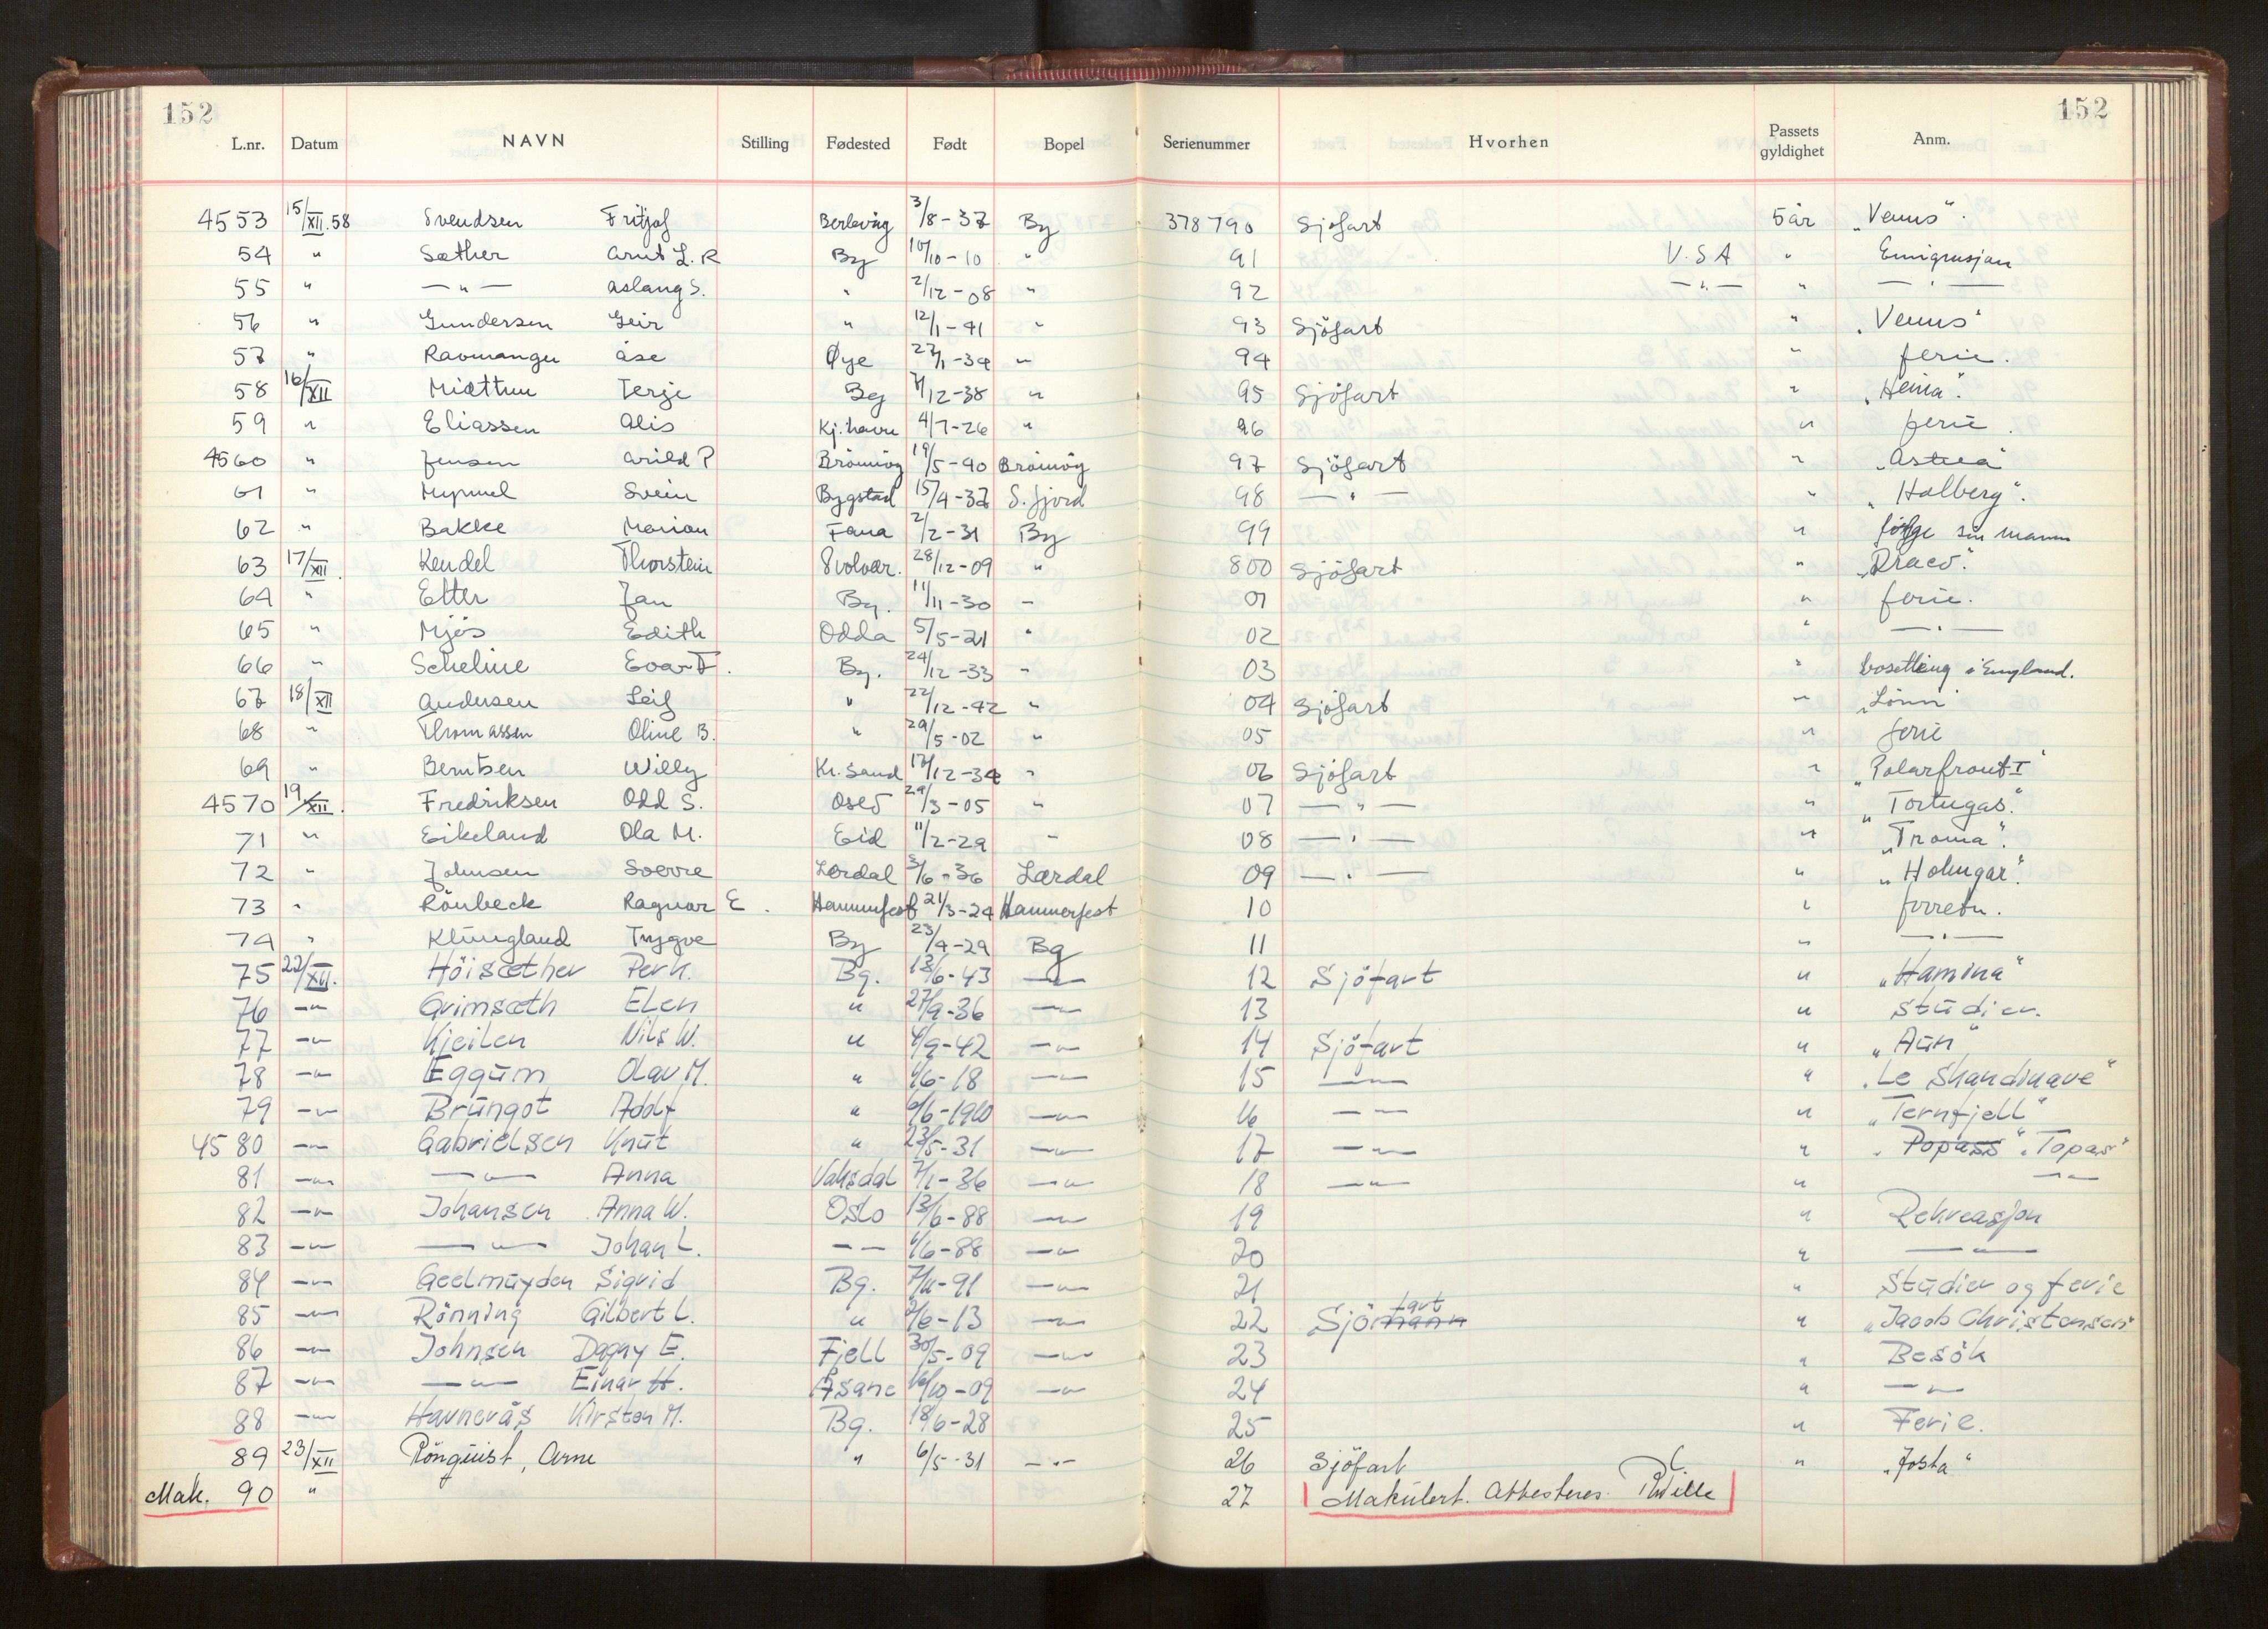 152 152
L.nr. Datum NAVN Stilling Fødested Født Bopel Serienummer Hvorhen Passets gyldighet Anm.
4553 15/XII.58 Svendsen Fritjof Berlevåg 3/8-37 By 378790 Sjøfart 5 år "Venus".
54 " Sæther Arnt L. R By 10/10-10 " 91 U.S.A " Emigrasjon
55 " —"— Aslaug S. " 2/12-08 " 92 —"— " —"—
56 " Gundersen Geir " 12/1-41 " 93 Sjöfart " "Venus"
57 " Åse Øye 27/1-34 " 94 " ferie.
58 16/XII Midttun Terje By 7/12-38 " 95 Sjöfart "
59 " Eliassen Alis Kj.havn 4/7-26 " 96 " ferie.
4560 " Jensen Arild P 19/5-40 97 Sjöfart " "Astrea"
61 " Myrmel Svein Bygstad 15/4-37 S.fjord 98 —"— " "Holberg".
62 " Bakke Marion Fana 2/2-31 By 99 " følge sin mann
63 17/XII. Kendel Thorstein Svolvær. 28/12-09 " 800 Sjöfart " "Draco".
64 " Etter Jan By. 11/11-30 " 01 " ferie.
65 " Mjös Edith Odda 5/5-21 " 02 " —"—
66 " Scheline Eva F. By. 24/12-33 " 03 " bosetting i England.
67 18/XII Andersen Leif " 22/12-42 " 04 Sjöfart " "Lönn"
68 " Thomassen Oline B. " 29/5-02 " 05 " ferie
69 " Berntsen Willy Kr.sand 17/12-34 " 06 Sjöfart " "Polarfront I"
4570 19/XII. Fredriksen Odd S. Oslo 29/3-05 " 07 —"— " "Tortugas."
71 " Eikeland Ola M. Eid 11/2-29 " 08 —"— " "Troma".
72 " Johnsen Sverre Lærdal 3/6-36 Lærdal 09 —"— " "Holmgar".
73 " Rönbeck Ragnar E. Hammerfest 21/3-24 Hammerfest 10 " forretn.
74 " Klungland Trygve By 23/4-29 Bg 11 " —"—
75 22/XII. Höisæther Per K. Bg. 13/6-43 —"— 12 Sjöfart " "Hamina"
76 —"— Grimsæth Elen " 27/9-36 —"— 13 " Studier.
77 —"— Kjeilen Nils W. " 4/9-42 —"— 14 Sjöfart " "Aun"
78 —"— Eggum Olav M. " 4/6-18 —"— 15 —"— " "Le Skandinave"
79 —"— Brungot Adolf " 6/6-1910 —"— 16 —"— " "Ternfjell"
4580 —"— Gabrielsen Knut " 23/5-31 —"— 17 —"— " "Popass" "Topas"
81 —"— —"— Anna Vaksdal 7/1-36 —"— 18 —"— " —"—
82 —"— Johansen Anna W. Oslo 13/6-88 —"— 19 " Rekreasjon
83 —"— —"— Johan L. —"— 6/6-88 —"— 20 " —"—
84 —"— Geelmuyden Sigrid Bg. 7/11-91 —"— 21 " Studier og ferie
85 —"— Rönning Gilbert L. " 2/6-13 —"— 22 Sjömann fart " "Jacob Christensen"
86 —"— Johnsen Dagny E. Fjell 30/5-09 —"— 23 " Besök
87 —"— —"— Einar H. Åsane 16/10-09 —"— 24 " —"—
88 —"— Havnerås Kirsten M. Bg. 18/6-28 25 " Ferie.
89 23/XII Rönquist, Arne " 6/5-31 —"— 26 Sjöfart " "Josta"
Mak. 90 " 27 Makulert. Attesteres.